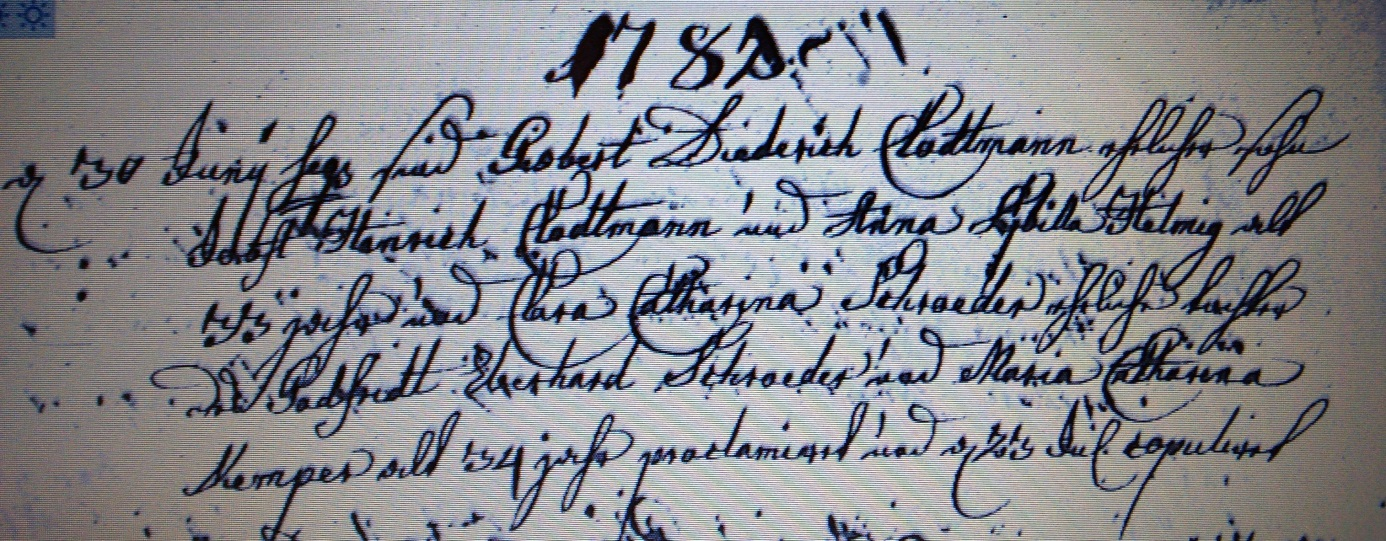 1782
d 30 Juny sind Robert Diederich Clodtmann ehelicher sohn
Jobst Henrich Clodtmann und Anna Sybilla Helmig alt
33 jahr und Clara Catharina Schroeder ehliche tochter
des Godfridt Eberhard Schroeder und Maria Catharina
Kemper alt 34 jahr proclamiert und d 23 Jul. copuliert